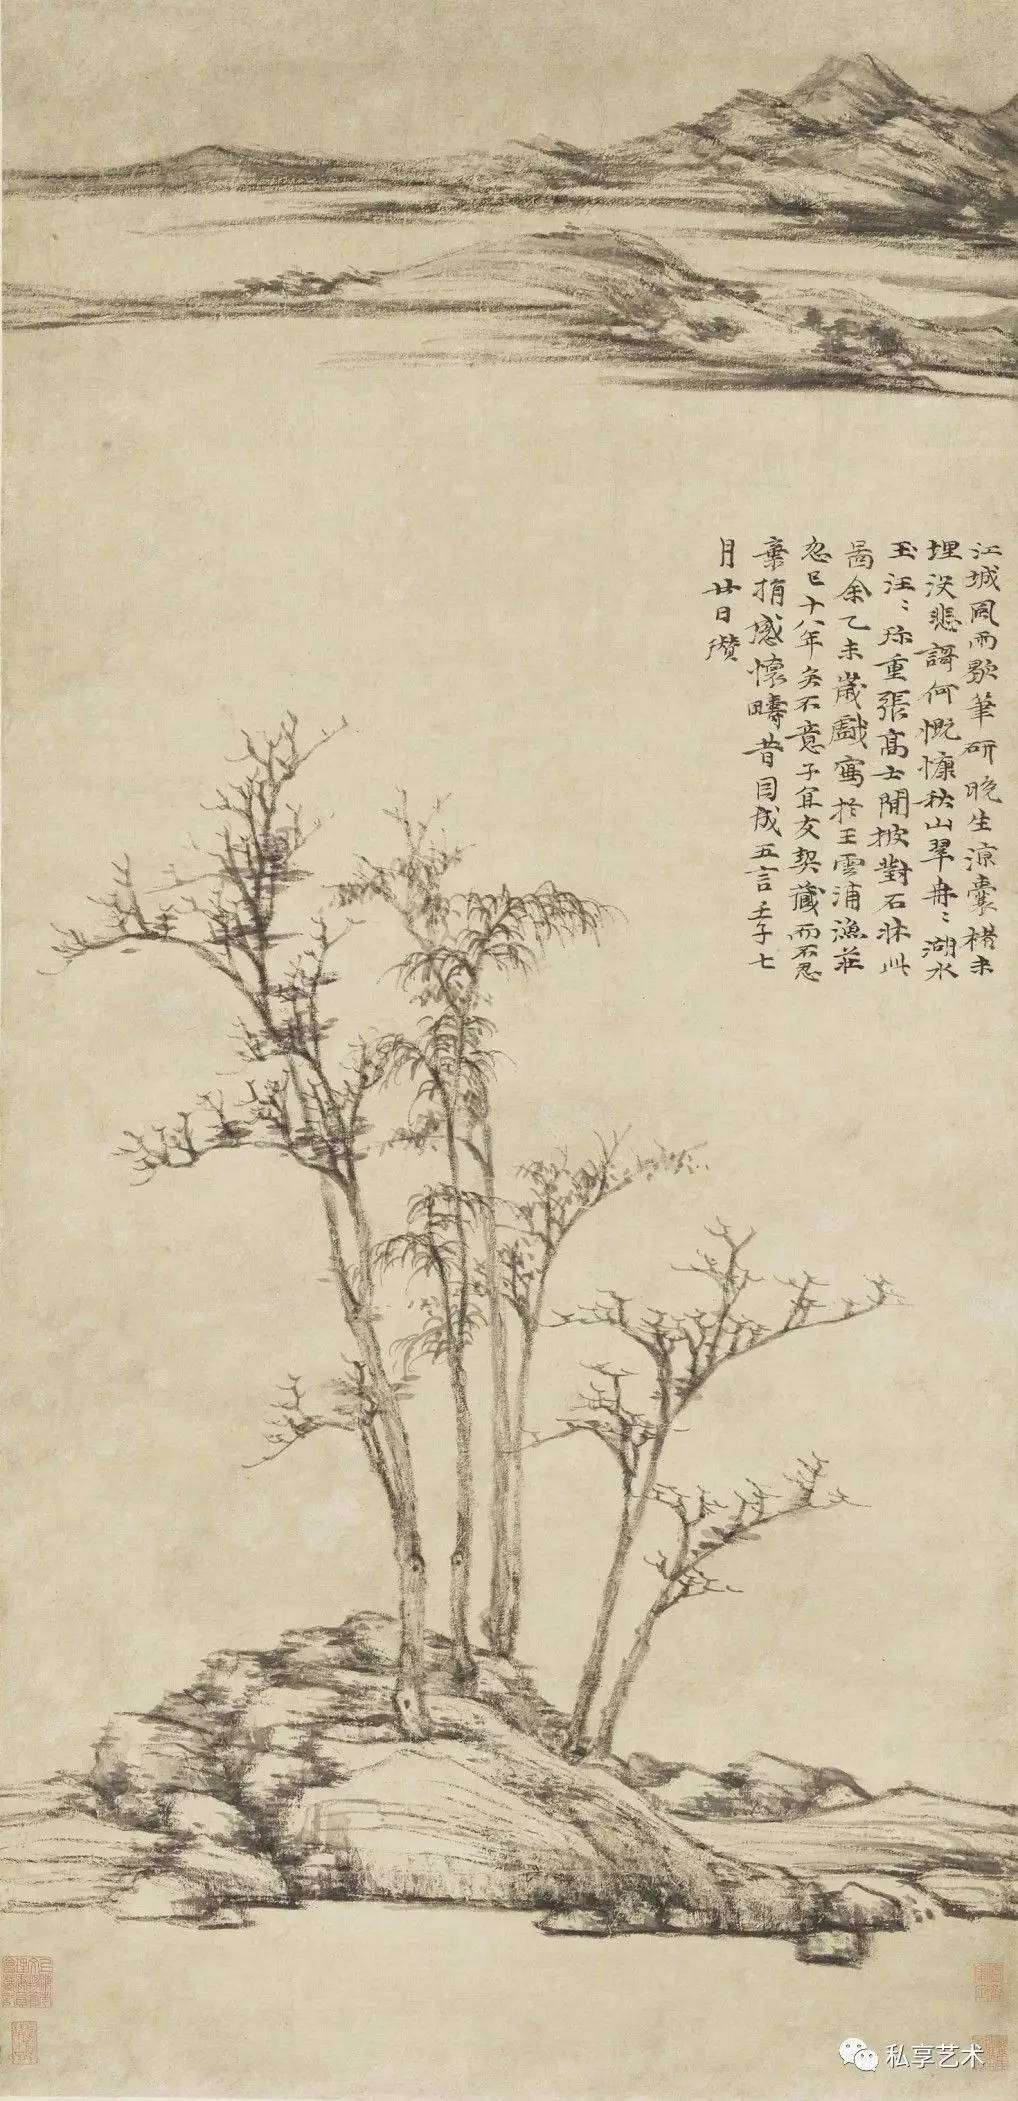 江城風雨歇筆研晚生涼囊楮未
埋没悲謌何慨慷秋山翠冉〻湖水
玉汪〻珎重張高士閒披對石牀此
啚余乙未歲戲寫於王雲浦漁莊
忽已十八年矣不意子宜友契藏而不忍
棄捐感懷疇昔因成五言壬子七
月廿日瓚
私享艺术